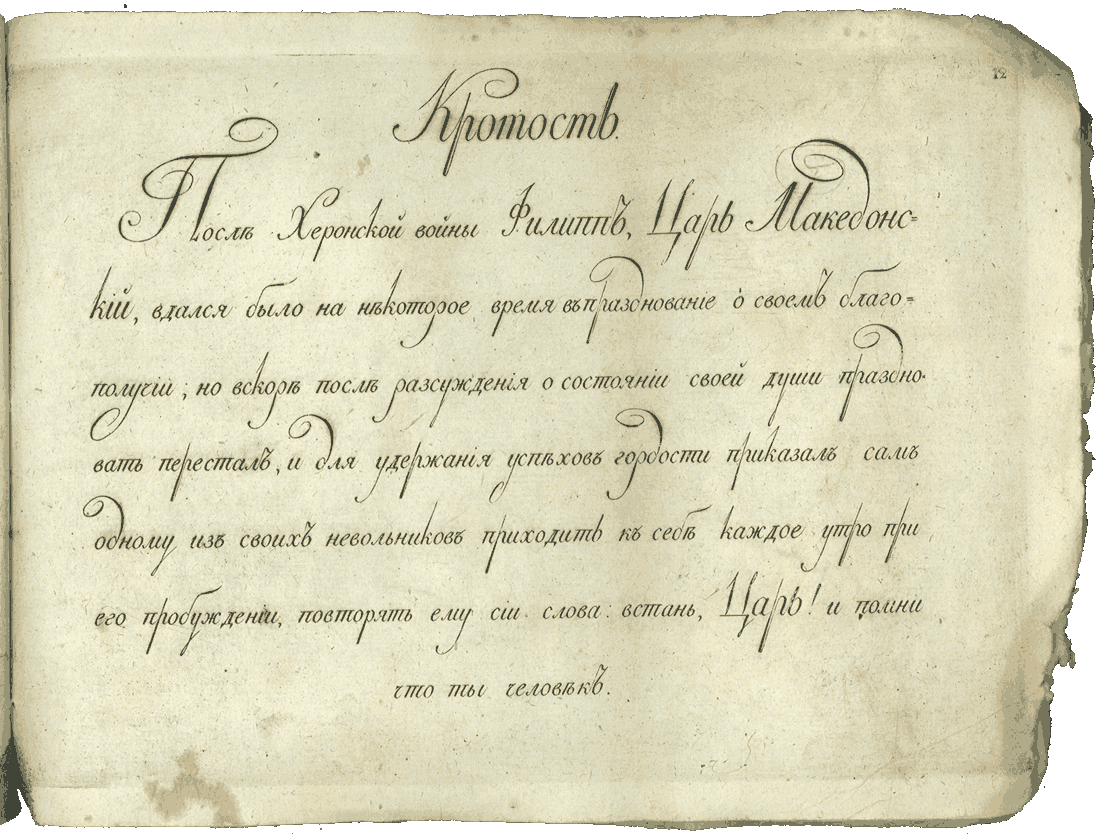 12
Кротость.
Послѣ Херонской войны Филиппъ, Царь Македонс=
кій, вдался было на нѣкоторое время въ празднованіе о своемъ благо=
получіи; но вскорѣ послѣ разсужденія о состояніи своей души праздно-
вать пересталъ, и для удержанія успѣховъ гордости приказалъ самъ
одному изъ своихъ невольниковъ приходить къ себѣ каждое утро при
его пробужденіи, повторять ему сіи слова: встань, Царь! и помни
что ты человѣкъ.